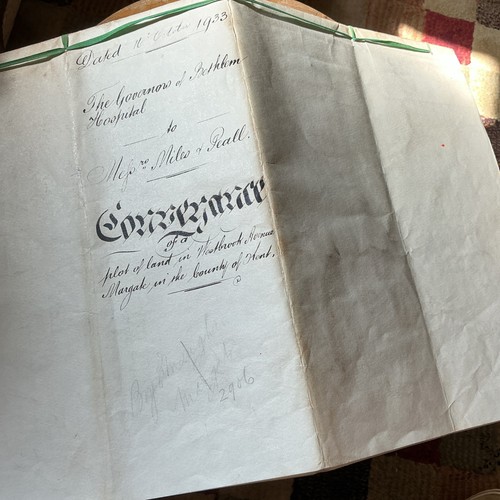 Dated 1933
The Governors of Bethlem
Hospital
to
Mess.rs Miles & Peall.
Conveyance
of a
plot of land in Westbrook Avenue
Margate in the County of Kent.
2906